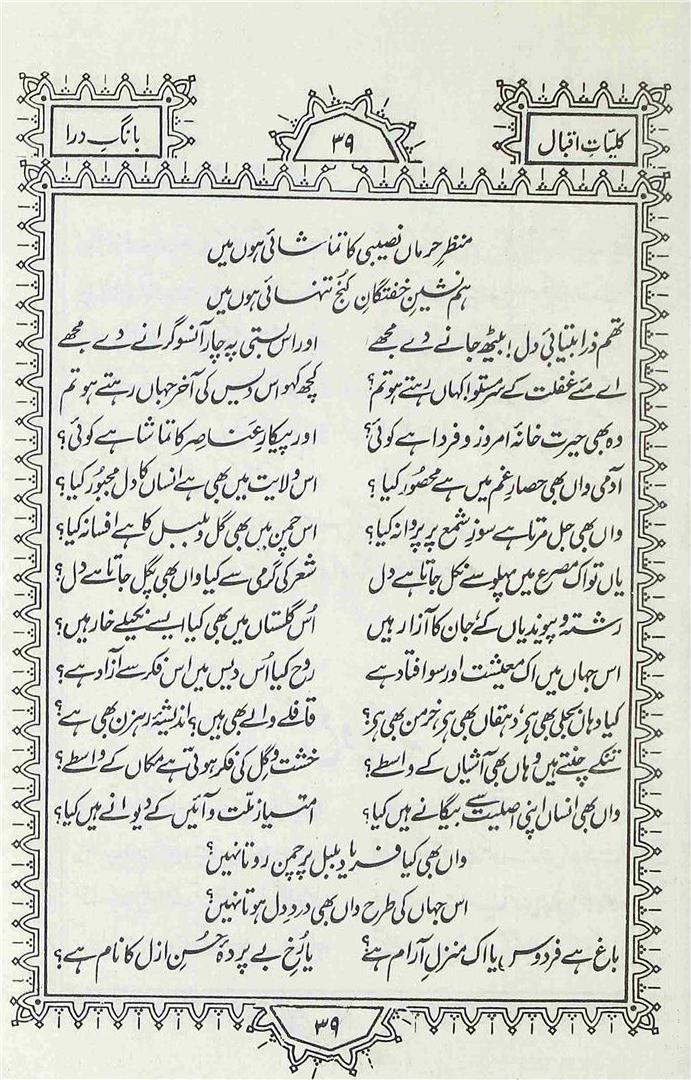 کلیاتِ اقبال
۳۹
بانگِ درا
منظرِ حرماں نصیبی کا تماشائی ہوں میں
ہم نشینِ خفتگانِ کنجِ تنہائی ہوں میں
تھم ذرا بیتابیِ دل! بیٹھ جانے دے مجھے اور اس بستی پہ چار آنسو گرانے دے مجھے
اے مئے غفلت کے سرمستو! کہاں رہتے ہو تم؟ کچھ کہو اس دیس کی آخر جہاں رہتے ہو تم
وہ بھی حیرت خانۂ امروز و فردا ہے کوئی؟ اور پیکارِ عناصر کا تماشا ہے کوئی؟
آدمی واں بھی حصارِ غم میں ہے محصور کیا؟ اس ولایت میں بھی ہے انساں کا دل مجبور کیا؟
واں بھی جل مرتا ہے سوزِ شمع پر پروانہ کیا؟ اس چمن میں بھی گل و بلبل کا ہے افسانہ کیا؟
یاں تو اک مصرع میں پہلو سے نکل جاتا ہے دل شعر کی گرمی سے کیا واں بھی پگھل جاتا ہے دل؟
رشتہ و پیوند یاں کے جان کا آزار ہیں اُس گلستاں میں بھی کیا ایسے نکیلے خار ہیں؟
اس جہاں میں اک معیشت اور سو افتاد ہے روح کیا اُس دیس میں اس فکر سے آزاد ہے؟
کیا وہاں بجلی بھی ہے، دہقاں بھی ہے، خرمن بھی ہے؟ قافلے والے بھی ہیں؟ اندیشۂ رہزن بھی ہے؟
تنکے چنتے ہیں وہاں بھی آشیاں کے واسطے؟ خشت و گل کی فکر ہوتی ہے مکاں کے واسطے؟
واں بھی انساں اپنی اصلیت سے بیگانے ہیں کیا؟ امتیازِ ملت و آئیں کے دیوانے ہیں کیا؟
واں بھی کیا فریادِ بلبل پر چمن روتا نہیں؟
اس جہاں کی طرح واں بھی دردِ دل ہوتا نہیں؟
باغ ہے فردوس یا اک منزلِ آرام ہے؟ یا رُخِ بے پردۂ حسنِ ازل کا نام ہے؟
۳۹